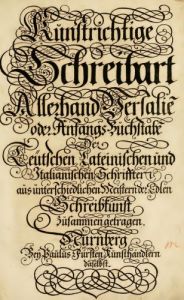 Kunstrichtige
Schreibart
Allerhand Versalie
oder Anfangs Buchstabe
Der
Teutschen Lateinischen und
Italianischen Schrifften
aus unterschiedlichen Meistern der Edlen
Schreibkunst
zusammen getragen.
Nürnberg
Bey Paulus Fürsten Kunsthändlern
daselbst.